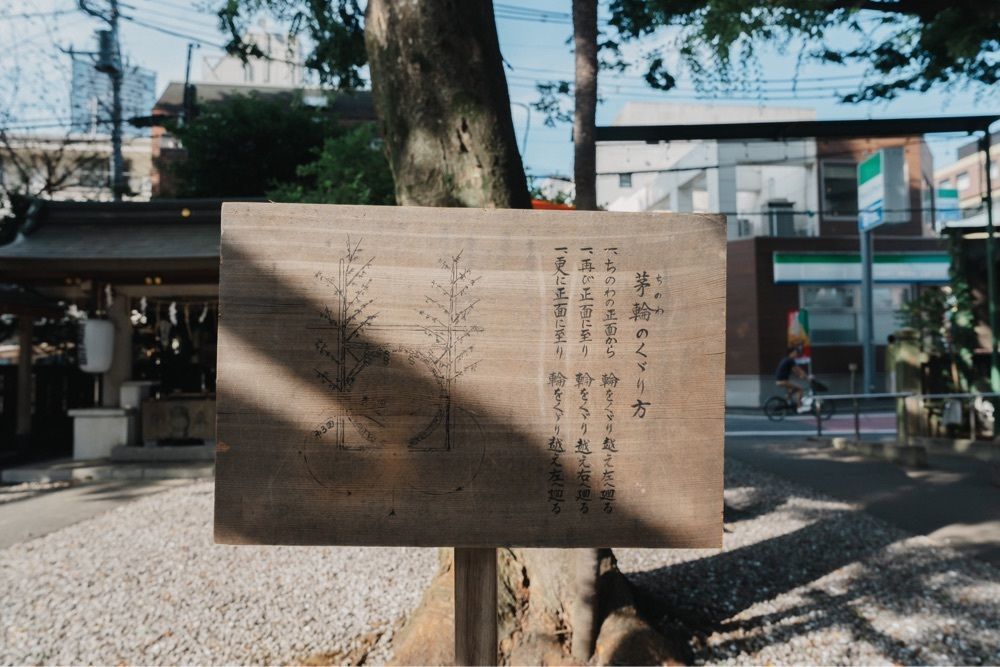 ちのわ
茅輪のくゞり方
一、ちのわの正面から 輪をくゞり越え左へ廻る
一、再び正面に至り 輪をくゞり越え右へ廻る
一、更に正面に至り 輪をくゞり越え左へ廻る